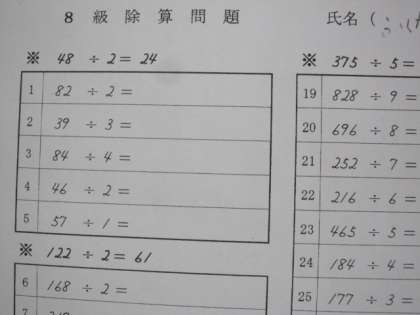 8 級 除 算 問 題
氏名(
※ 48 ÷ 2 = 24
1 82 ÷ 2 =
2 39 ÷ 3 =
3 84 ÷ 4 =
4 46 ÷ 2 =
5 57 ÷ 1 =
※ 122 ÷ 2 = 61
6 168 ÷ 2 =
7
※ 375 ÷ 5 =
19 828 ÷ 9 =
20 696 ÷ 8 =
21 252 ÷ 7 =
22 216 ÷ 6 =
23 465 ÷ 5 =
24 184 ÷ 4 =
25 177 ÷ 3 =